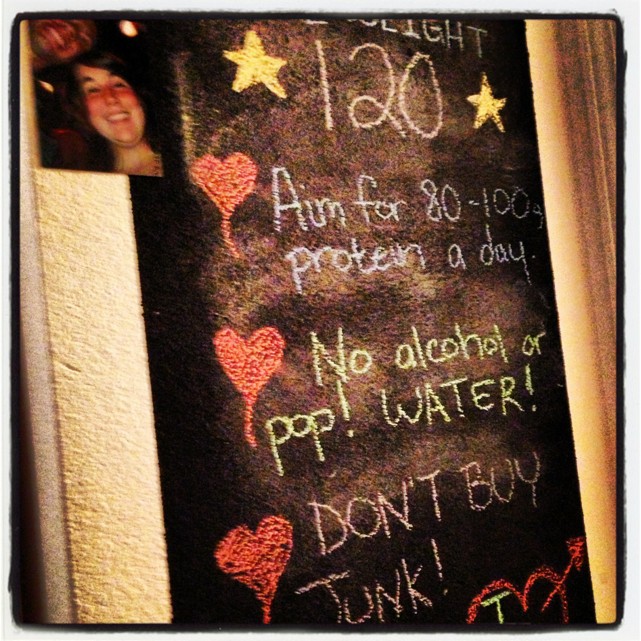 120
Aim for 80-100g
protein a day.
No alcohol or
pop! WATER!
DON'T BUY
JUNK!